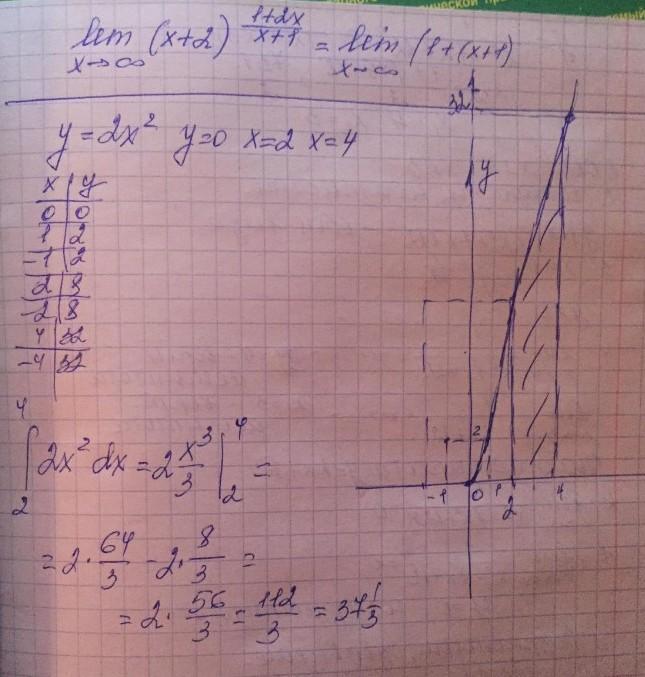 lim (x+2)^((1+2x)/(x+1)) = lim (1+(x+1)
x→∞ x→∞
y=2x² y=0 x=2 x=4
x | y
0 | 0
1 | 2
-1 | 2
2 | 8
-2 | 8
4 | 32
-4 | 32
∫₂⁴ 2x² dx = 2 x³/3 |₂⁴ =
= 2·64/3 - 2·8/3 =
= 2·56/3 = 112/3 = 37 1/3
32
y
2
-1 0 1 2 4